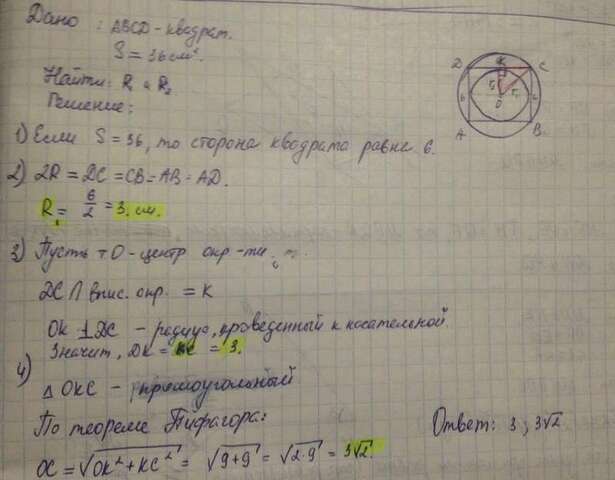 Дано : ABCD - квадрат.
S = 36 см².
Найти: R₁ и R₂
Решение:
D K C
6 r r₁ 6
O
A B
1) Если S = 36, то сторона квадрата равна 6.
2) 2R = DC = CB = AB = AD.
R₁ = 6/2 = 3 см.
3) Пусть т О - центр окр-ти,
DC ∩ впис. окр. = K
OK ⊥ DC - радиус, проведенный к касательной.
Значит, DK = KC = 3.
4)
△ OKC - прямоугольный
По теореме Пифагора:
OC = √OK² + KC² = √9+9 = √2·9 = 3√2.
Ответ: 3; 3√2